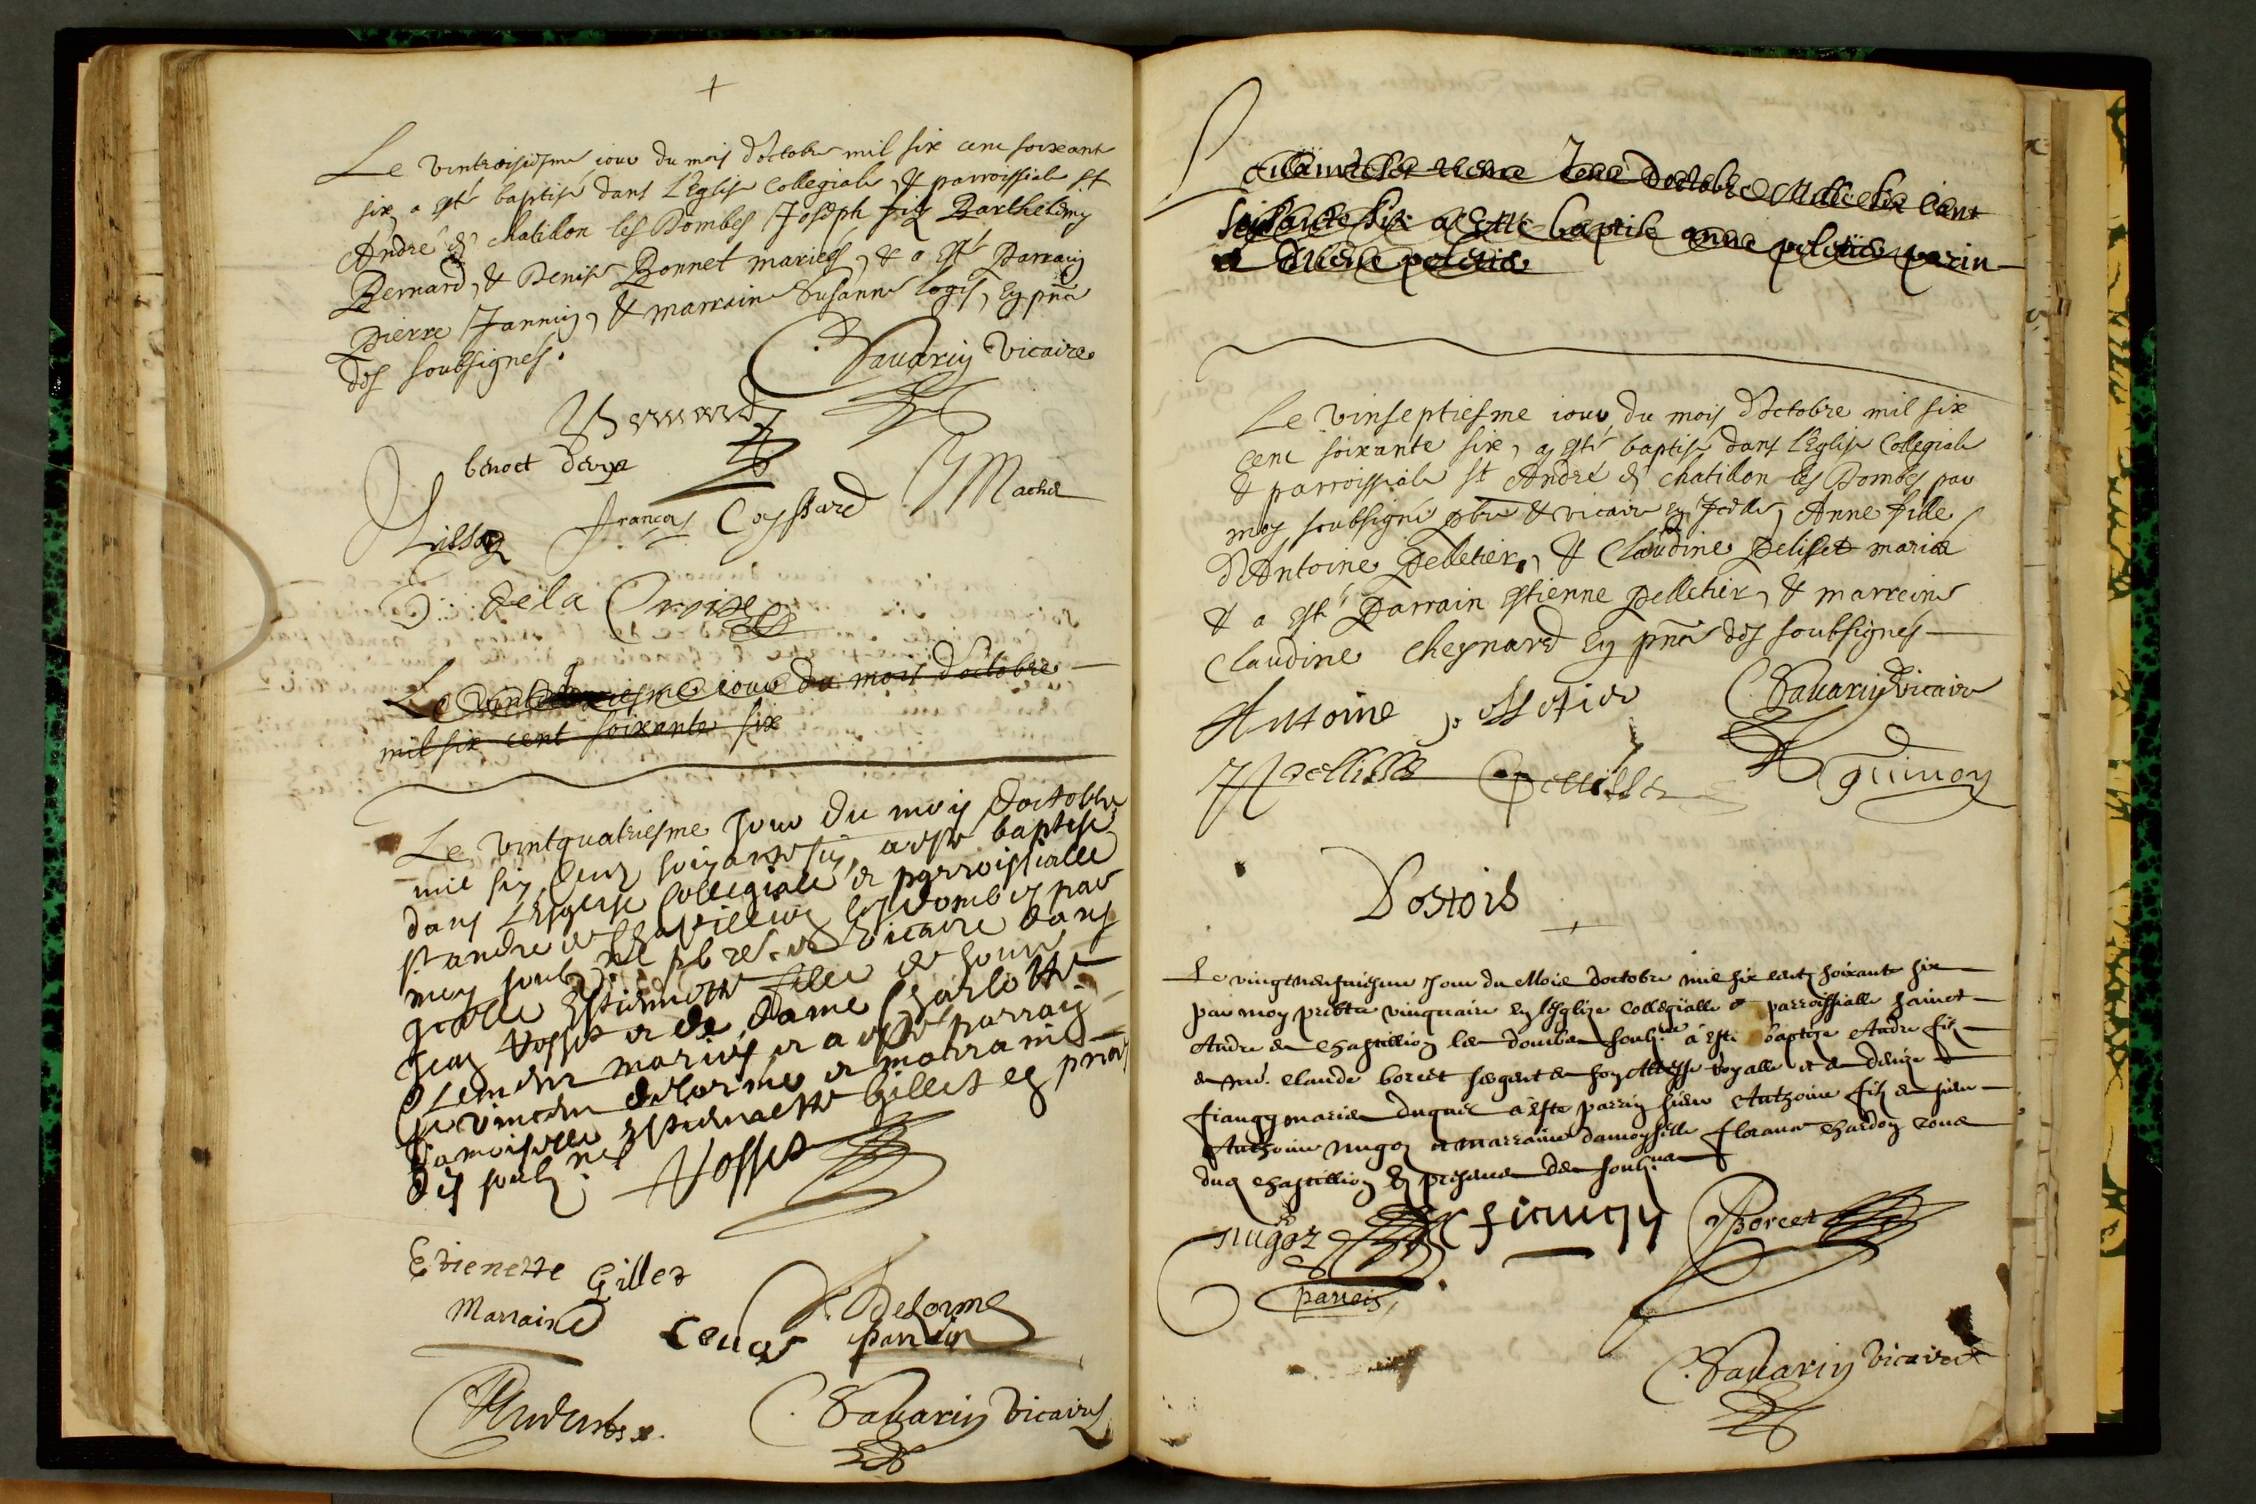 Le vintroisiesme iour du mois d'octobre mil six cent soixante
six, a esté baptisé dans l'Eglise Collegiale & parroissiale St
André de Chatillon les Dombes Joseph fils Barthelemy
Bernard, & Denise Bonnet mariés, & a esté Parrain
Pierre Jannin, & marraine Susanne logis, en pnce
des soubsignés.
C. Savarin Vicaire
Bernard
benoet
François Coyssard
Machet
De la Croise
Le vint iesme iour du mois d'octobre
mil six cent soixante six
Le vintquatriesme jour du moys d'octobre
mil six cens soixante six, a esté baptisé
dans L'Esglise Collegiale et parroissialle
St andré de Chastillion les dombes par
moy soubz.né pbre. et vicaire dans
icelle Estiennette fille de sieur
Jean Vosset et de dame Charlotte
mariés et a esté parrain
vincent delorme et marraine
damoiselle Estiennette Gillet en pnce
des soubz.nés
Vosset
Etienette Gillet
Marraine
Delorme
parrain
C. Savarin Vicaire
octobre mille six cent
soissante six a esté baptise anne peletier parin
Le vinseptiesme iour du mois d'octobre mil six
cent soixante six, a esté baptisé dans l'Eglise Collegiale
& parroissiale St André de Chatillon les Dombes par
moy soubsigné pbre & vicaire en Icelle, Anne fille
d'Antoine Pelletier, & Claudine Pelisset mariés
& a esté Parrain Estienne Pelletier, & marreine
Claudine Cheynard en pnce des soubsignés
Antoine peletier
C. Savarin Vicaire
Pellisset
guimon
Dostois
Le vingtneufuiesme Jour du Mois doctobre mil six cent soixante six
par moy prebtre vicquaire en lesglize collegialle et parroissialle sainct
Andre de Chastillion les doumbes soubz.né a esté baptize Andre filz
de me. Claude boreet sergent de son Altesse royalle et de denize
fiangy mariés duquel a este parrin sieur Anthoine filz de sieur
Anthoine nugoz et marraine damoysselle florance chardon tous
dud chastillion En presence des soubz.nés
nugoz
parrein
fiangy
Boreet
C. Savarin Vicaire